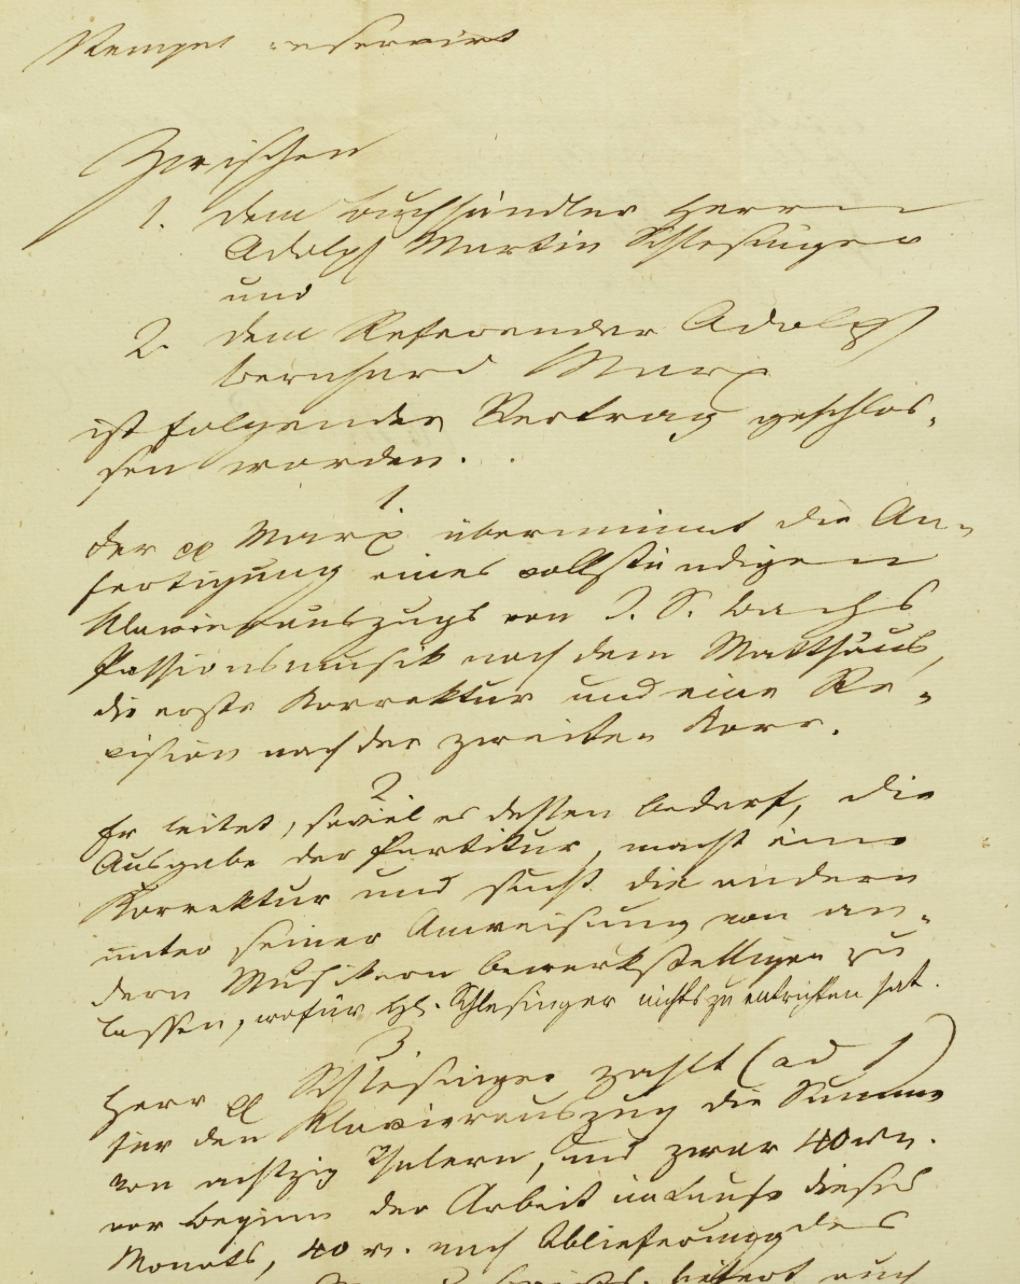 Stempel reservirt
Zwischen
1. dem Buchhändler Herrn
Adolph Martin Schlesinger
und
2. dem Referendar Adolph
Bernhard Marx
ist folgender Vertrag geschlos-
sen worden.
1.
Der pp Marx übernimmt die An-
fertigung eines vollständigen
Klavierauszugs von J. S. Bachs
Passionsmusik nach dem Matthäus,
die erste Korrektur und eine Re-
vision nach der zweiten Korr.
2
Er leitet, soviel es dessen bedarf, die
Ausgabe der Partitur, macht eine
Korrektur und sucht die andern
unter seiner Anweisung von an-
dern Musikern bewerkstelligen zu
lassen, wofür H. Schlesinger nichts zu entrichten hat.
3
Herr pp Schlesinger zahlt (ad 1)
für den Klavierauszug die Summe
von achtzig Thalern, und zwar 40 rn.
vor Beginn der Arbeit im Laufe dieses
Monats, 40 r. nach Ablieferung des
liefert auch